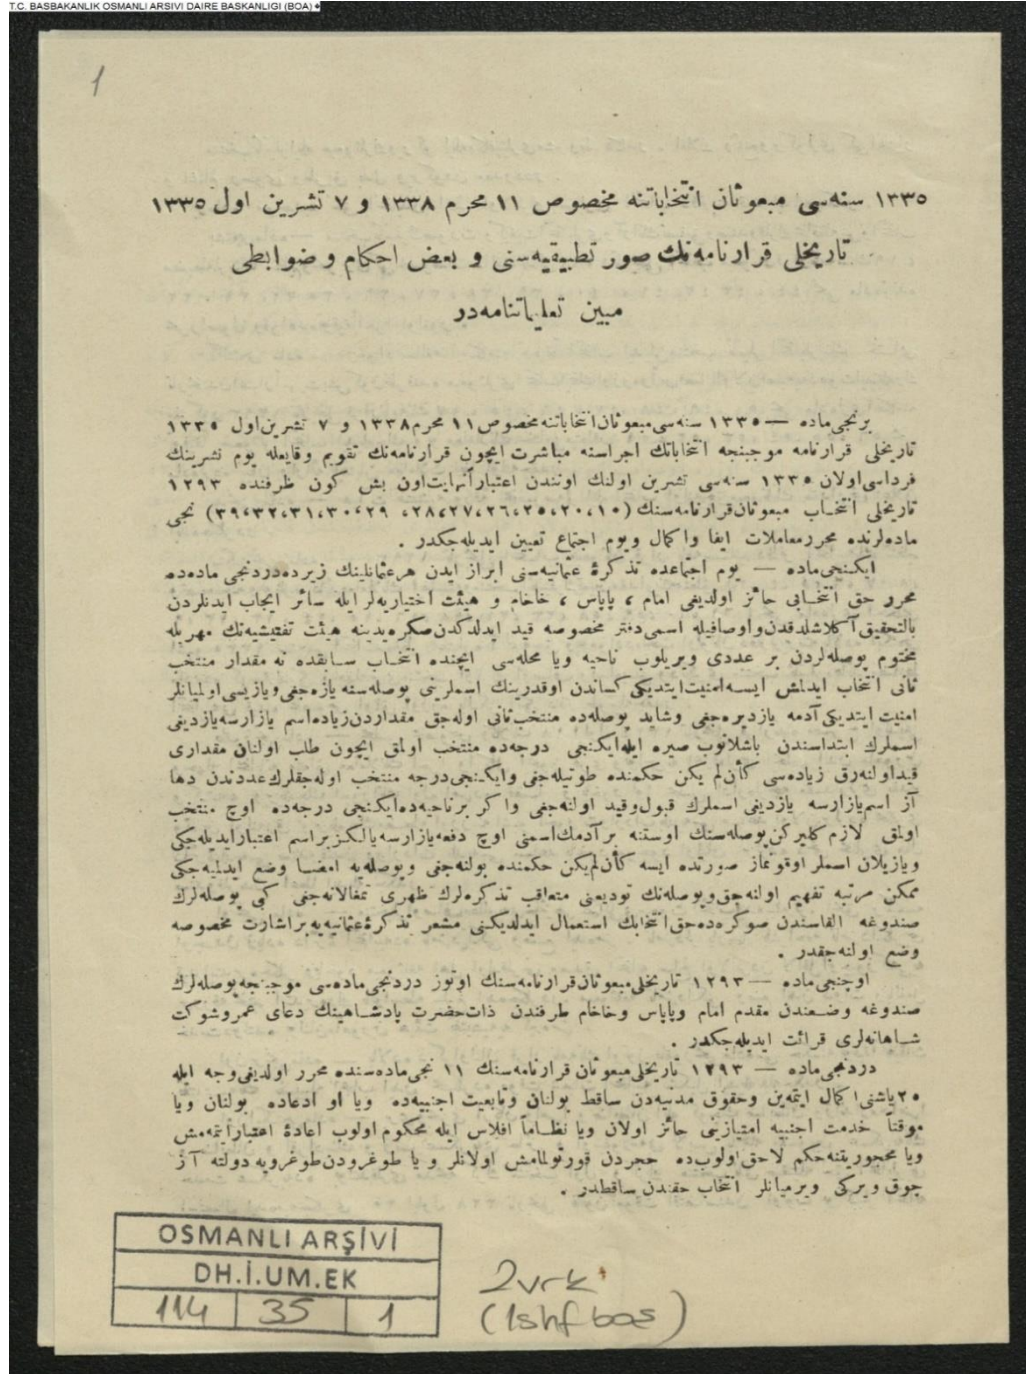 T.C. BASBAKANLIK OSMANLI ARSIVI DAIRE BASKANLIGI (BOA)
1
١٣٣٥ سنه‌سی مبعوثان انتخاباتنه مخصوص ١١ محرم ١٣٣٨ و ٧ تشرین اول ١٣٣٥
تاریخلی قرارنامه‌نك صور تطبیقیه‌سنی و بعض احكام و ضوابطی
مبین تعلیماتنامه‌در
برنجی‌ماده — ١٣٣٥ سنه‌سی مبعوثان‌انتخاباتنه‌مخصوص ١١ محرم ١٣٣٨ و ٧ تشرین‌اول ١٣٣٥
تاریخلی قرارنامه موجبنجه انتخاباتك اجراسنه مباشرت ایچون قرارنامه‌نك تقویم وقایعله یوم نشرینك
فرداسی‌اولان ١٣٣٥ سنه‌سی تشرین اولنك اوتندن اعتباراً‌نهایت‌اون بش كون ظرفنده ١٢٩٣
تاریخلی انتخاب مبعوثان‌قرارنامه‌سنك (١٠،٢٠،٢٥،٢٦،٢٧،٢٨، ٢٩،٣٠،٣١،٣٢،٣٩) نجی
ماده‌لرنده محررمعاملات ایفا واكمال ویوم اجتماع تعیین ایدیله‌جكدر .
ایكنجی‌ماده — یوم اجتماعده تذكرهٔ عثمانیه‌سنی ابراز ایدن هرعثمانلینك زیرده‌دردنجی ماده‌ده
محرر حق انتخابی حائز اولدیغی امام ، پاپاس ، خاخام و هیئت اختیاریه‌لر ایله سائر ایجاب ایدنلردن
بالتحقیق‌آكلاشلدقدن‌واوصافیله اسمی‌دفتر مخصوصه قید ایدلدكدن‌صكره‌یدینه هیئت تفتیشیه‌نك مهریله
مختوم پوصله‌لردن بر عددی ویریلوب ناحیه ویا محله‌سی ایچنده انتخاب سابقده نه مقدار منتخب
ثانی انتخاب ایدلمش ایسه‌امنیت‌ایتدیكی‌كساندن اوقدرینك اسملرینی پوصله‌سنه یازه‌جغی‌ویازیسی‌اولمیانلر
امنیت ایتدیكی‌آدمه یازدیره‌جغی وشاید پوصله‌ده منتخب‌ثانی اوله‌جق مقداردن‌زیاده‌اسم یازارسه‌یازدیغی
اسملرك ابتداسندن باشلانوب صیره ایله‌ایكنجی درجه‌ده منتخب اولمق ایچون طلب اولنان مقداری
قیداولنه‌رق زیاده‌سی كأن‌لم یكن حكمنده طوتیله‌جغی وایكنجی‌درجه منتخب اوله‌جقلرك‌عددندن دها
آز اسم‌یازارسه یازدیغی اسملرك قبول‌وقید اولنه‌جغی واكر برناحیه‌ده‌ایكنجی درجه‌ده اوچ منتخب
اولمق لازم كلیركن‌پوصله‌سنك اوستنه برآدمك‌اسمنی اوچ دفعه‌یازارسه‌یالكزبراسم اعتبارایدیله‌جكی
ویازیلان اسملر اوقونماز صورتده ایسه كأن‌لم‌یكن حكمنده بولنه‌جغی وپوصله‌یه امضا وضع ایدلمیه‌جكی
ممكن مرتبه تفهیم اولنه‌جق‌وپوصله‌نك تودیعنی متعاقب تذكره‌لرك ظهری تمغالانه‌جغی كبی پوصله‌لرك
صندوغه القاسندن صوكره‌ده‌حق‌انتخابك استعمال ایدلدیكنی مشعر تذكرهٔ‌عثمانیه‌یه‌براشارت مخصوصه
وضع اولنه‌جقدر .
اوچنجی‌ماده — ١٢٩٣ تاریخلی‌مبعوثان‌قرارنامه‌سنك اوتوز دردنجی‌ماده‌سی موجبنجه‌پوصله‌لرك
صندوغه وضعندن مقدم امام وپاپاس وخاخام طرفندن ذات‌حضرت پادشاهینك دعای عمروشوكت
شاهانه‌لری قرائت ایدیله‌جكدر .
دردنجی‌ماده — ١٢٩٣ تاریخلی‌مبعوثان قرارنامه‌سنك ١١ نجی‌ماده‌سنده محرر اولدیغی‌وجه ایله
٢٥یاشنی‌اكمال ایتمه‌ین وحقوق مدنیه‌دن ساقط بولنان وتابعیت اجنبیه‌ده ویا او ادعاده بولنان ویا
موقتاً خدمت اجنبیه امتیازینی حائز اولان ویا نظاماً افلاس ایله محكوم اولوب اعادهٔ اعتبارایتمه‌مش
ویا محجوریتنه‌حكم لاحق‌اولوب‌ده حجردن قورتولمامش اولانلر و یا طوغرودن‌طوغرویه دولته آز
چوق ویركی ویرمیانلر انتخاب حقندن ساقطدر .
OSMANLI ARŞİVİ
DH.İ.UM.EK
114 35 1
2vrk
(1shf bos)